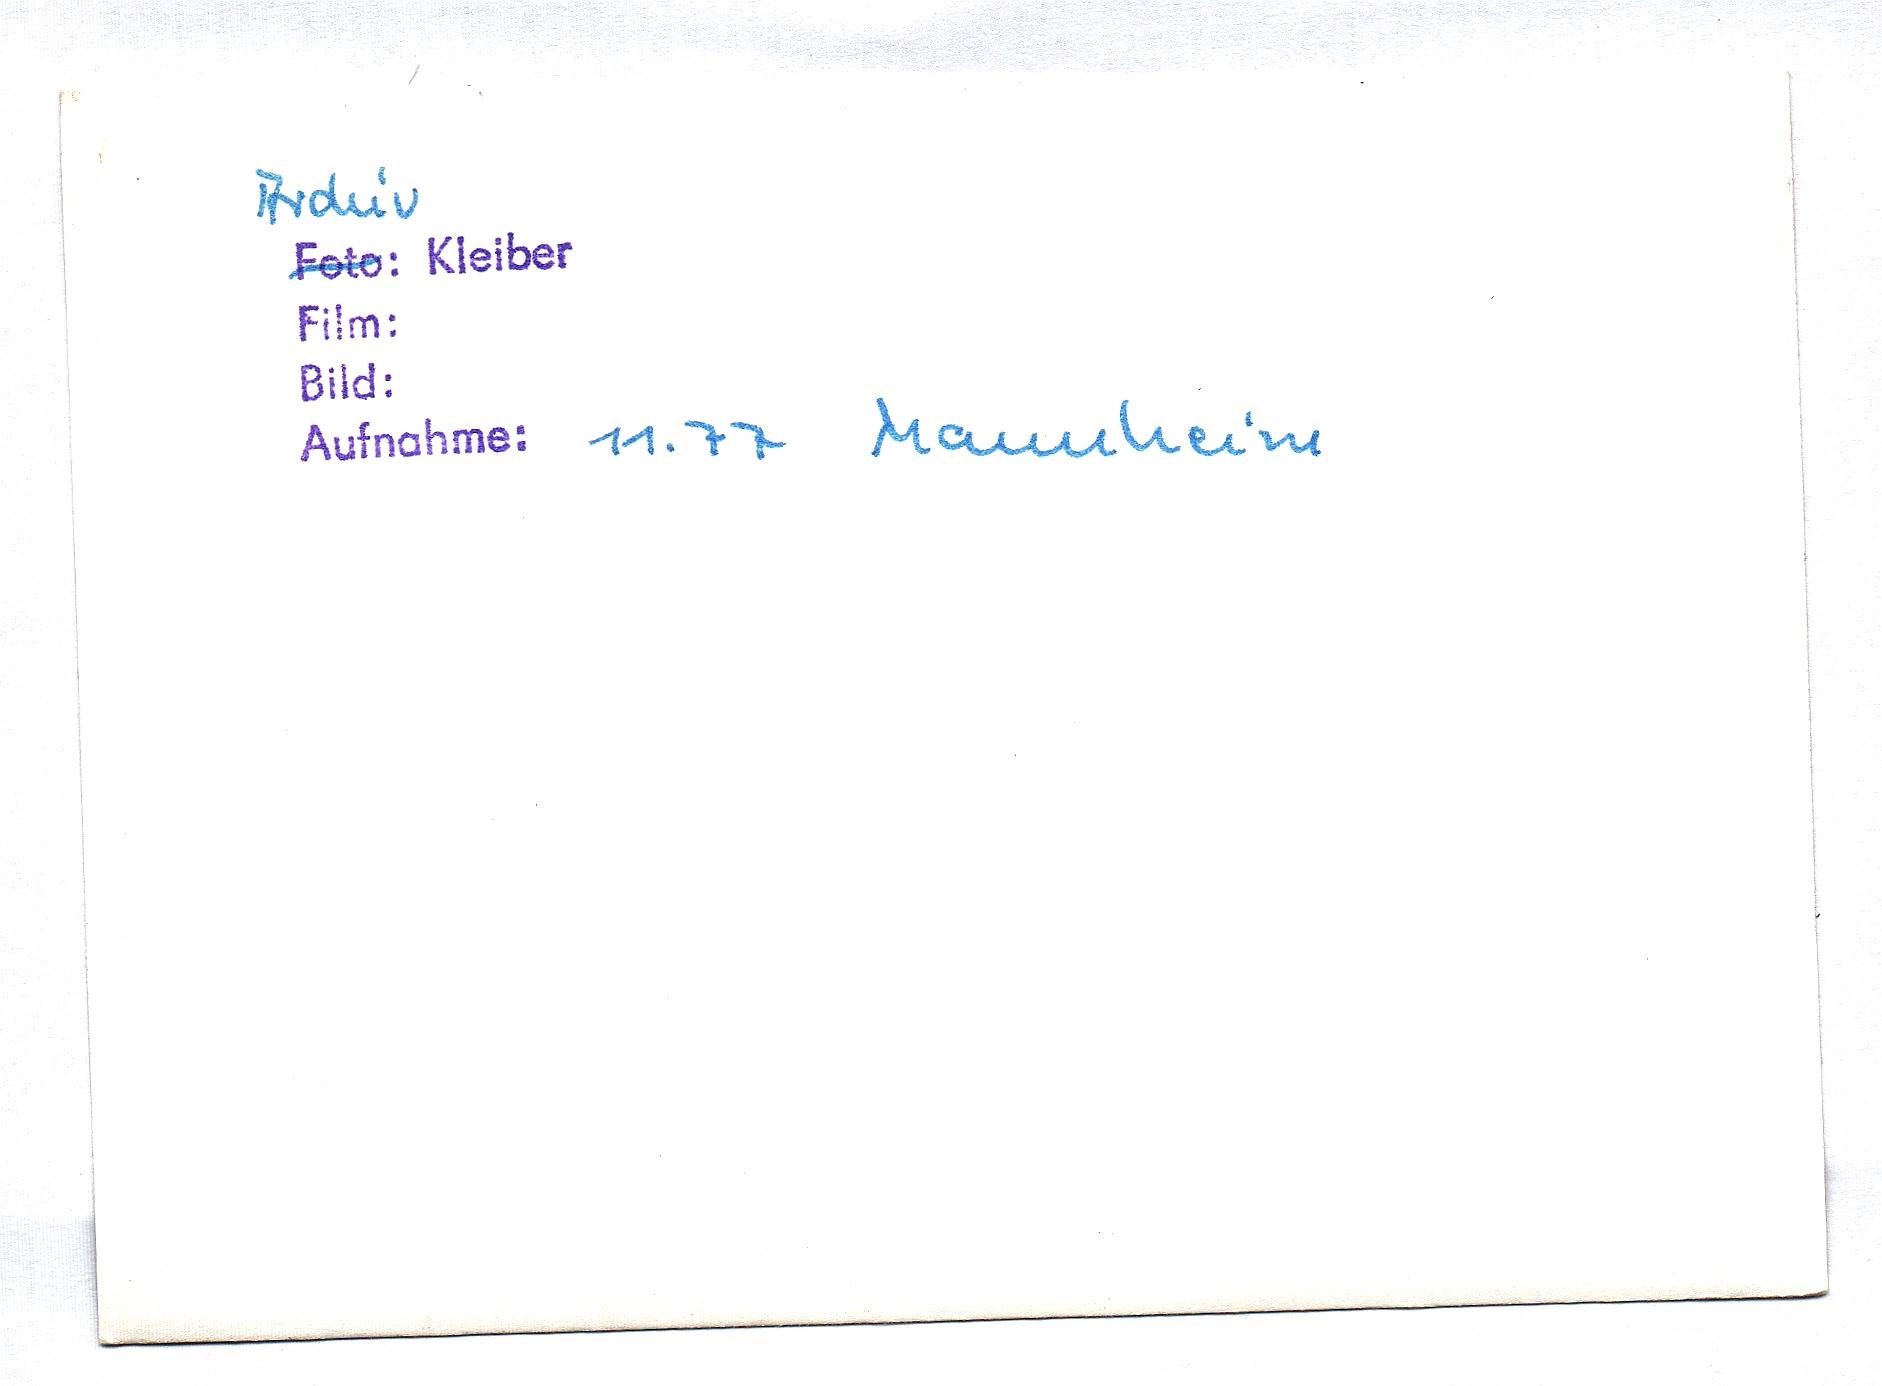 Archiv
Foto: Kleiber
Film:
Bild:
Aufnahme: 11.77 Mannheim